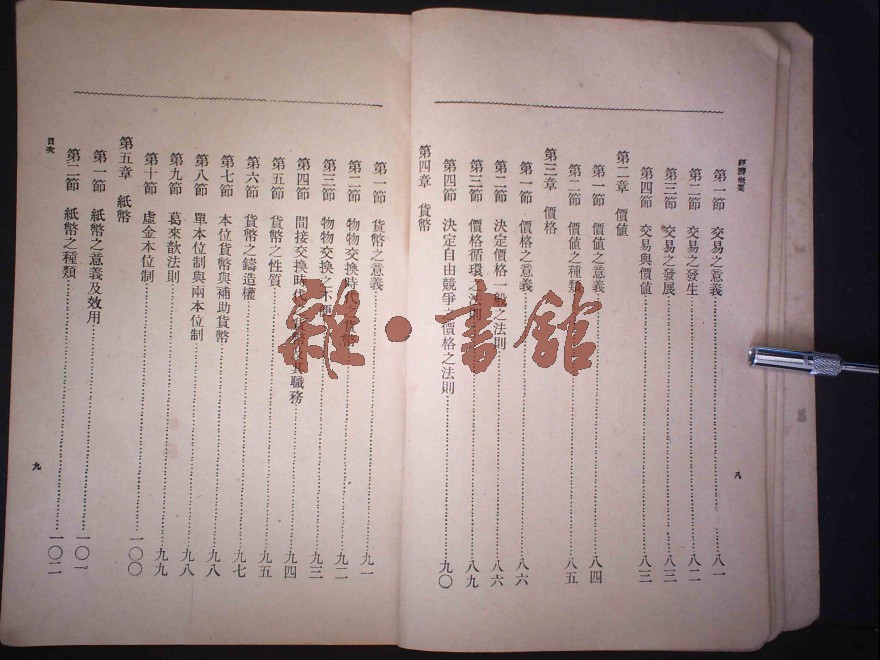 經濟概要
第一節 交易之意義 八一
第二節 交易之發生 八二
第三節 交易之發展 八三
第四節 交易與價值 八三
第二章 價值
第一節 價值之意義 八四
第二節 價值之種類 八五
第三章 價格
第一節 價格之意義 八六
第二節 決定價格一般之法則 八六
第三節 價格循環之法則 八九
第四節 決定自由競爭之價格之法則 九〇
第四章 貨幣
八
第一節 貨幣之意義 九一
第二節 物物交換時代之貨幣 九二
第三節 物物交換之不便 九三
第四節 間接交換時代之貨幣及其職務 九四
第五節 貨幣之性質 九五
第六節 貨幣之鑄造權 九七
第七節 本位貨幣與補助貨幣 九八
第八節 單本位制與兩本位制 九八
第九節 葛來歆法則 九九
第十節 虛金本位制 一〇〇
第五章 紙幣
第一節 紙幣之意義及效用 一〇一
第二節 紙幣之種類 一〇二
目次
九
雜·書館